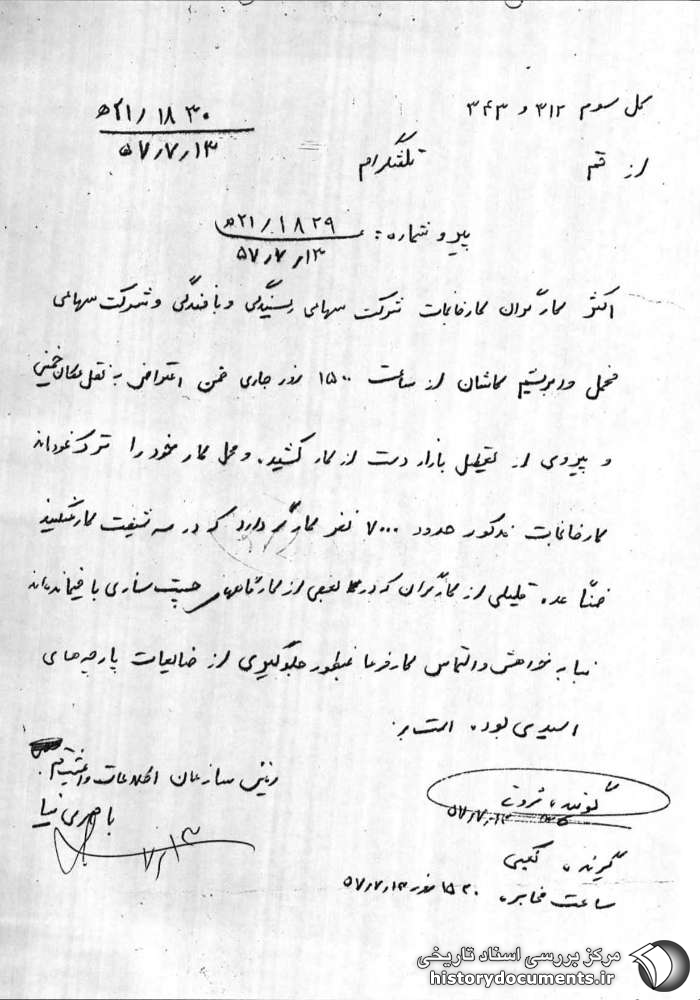 کل سوم ۳۱۲ و ۳۴۳
۲۱/۱۸۳۰ﻫ
۵۷٫۷٫۱۳
از قم تلفنگرام
پیرو شماره: ۲۱/۱۸۲۹ﻫ
۵۷٫۷٫۱۳
اکثر کارگران کارخانجات شرکت سهامی ریسندگی و بافندگی و شرکت سهامی
مخمل و ابریشم کاشان از ساعت ۱۵۰۰ روز جاری ضمن اعتراض به نقل مکان خمینی
و پیروی از تعطیل بازار دست از کار کشیده و محل کار خود را ترک نموده‌اند
کارخانجات مذکور حدود ۷۰۰۰ نفر کارگر دارد که در سه شیفت کار میکنند
ضمناً عده قلیلی از کارگران که در بعضی از کارگاههای چیت سازی باقیمانده‌اند
بنا به خواهش و التماس کارفرما بمنظور جلوگیری از ضایعات پارچه‌های
اسیدی بوده است
رئیس سازمان اطلاعات و امنیت قم
باصری نیا
۷٫۱۳
گوینده ثروتی
۵۷٫۷٫۱۳
گیرنده
ساعت مخابره ۱۵۳۰ مورخ ۵۷٫۷٫۱۳
مرکز بررسی اسناد تاریخی
historydocuments.ir